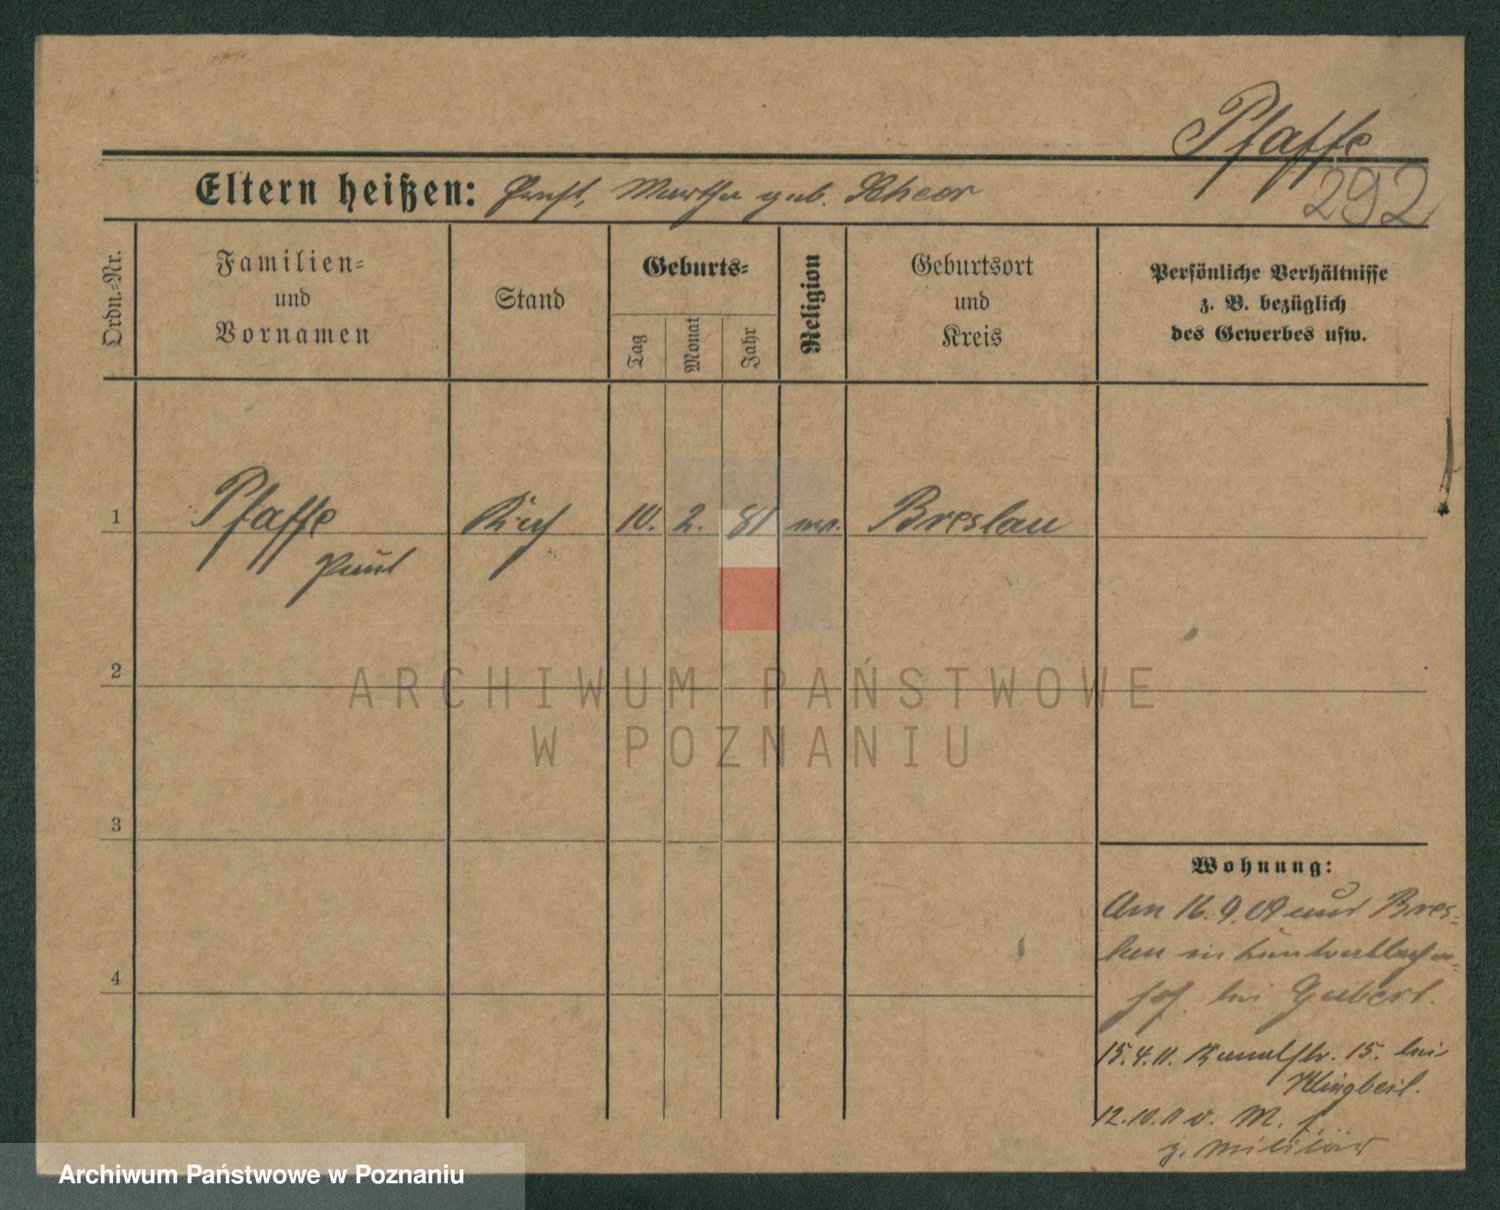 Pfaffe
292
Eltern heißen: Ernst, Martha geb. Scheer
Ordn.=Nr.
Familien=
und
Vornamen
Stand
Geburts=
Tag
Monat
Jahr
Religion
Geburtsort
und
Kreis
Persönliche Verhältnisse
z. B. bezüglich
des Gewerbes usw.
1 Pfaffe 10. 2. 81 Breslau
Paul
2
3
4
ARCHIWUM PAŃSTWOWE
W POZNANIU
Wohnung:
Am 16. 9. 09 aus Bres=
lau in
hof bei
15.4.11. Kanalstr. 15. bei
Klingbeil.
12.10.11 v. M.
z. Militär
Archiwum Państwowe w Poznaniu